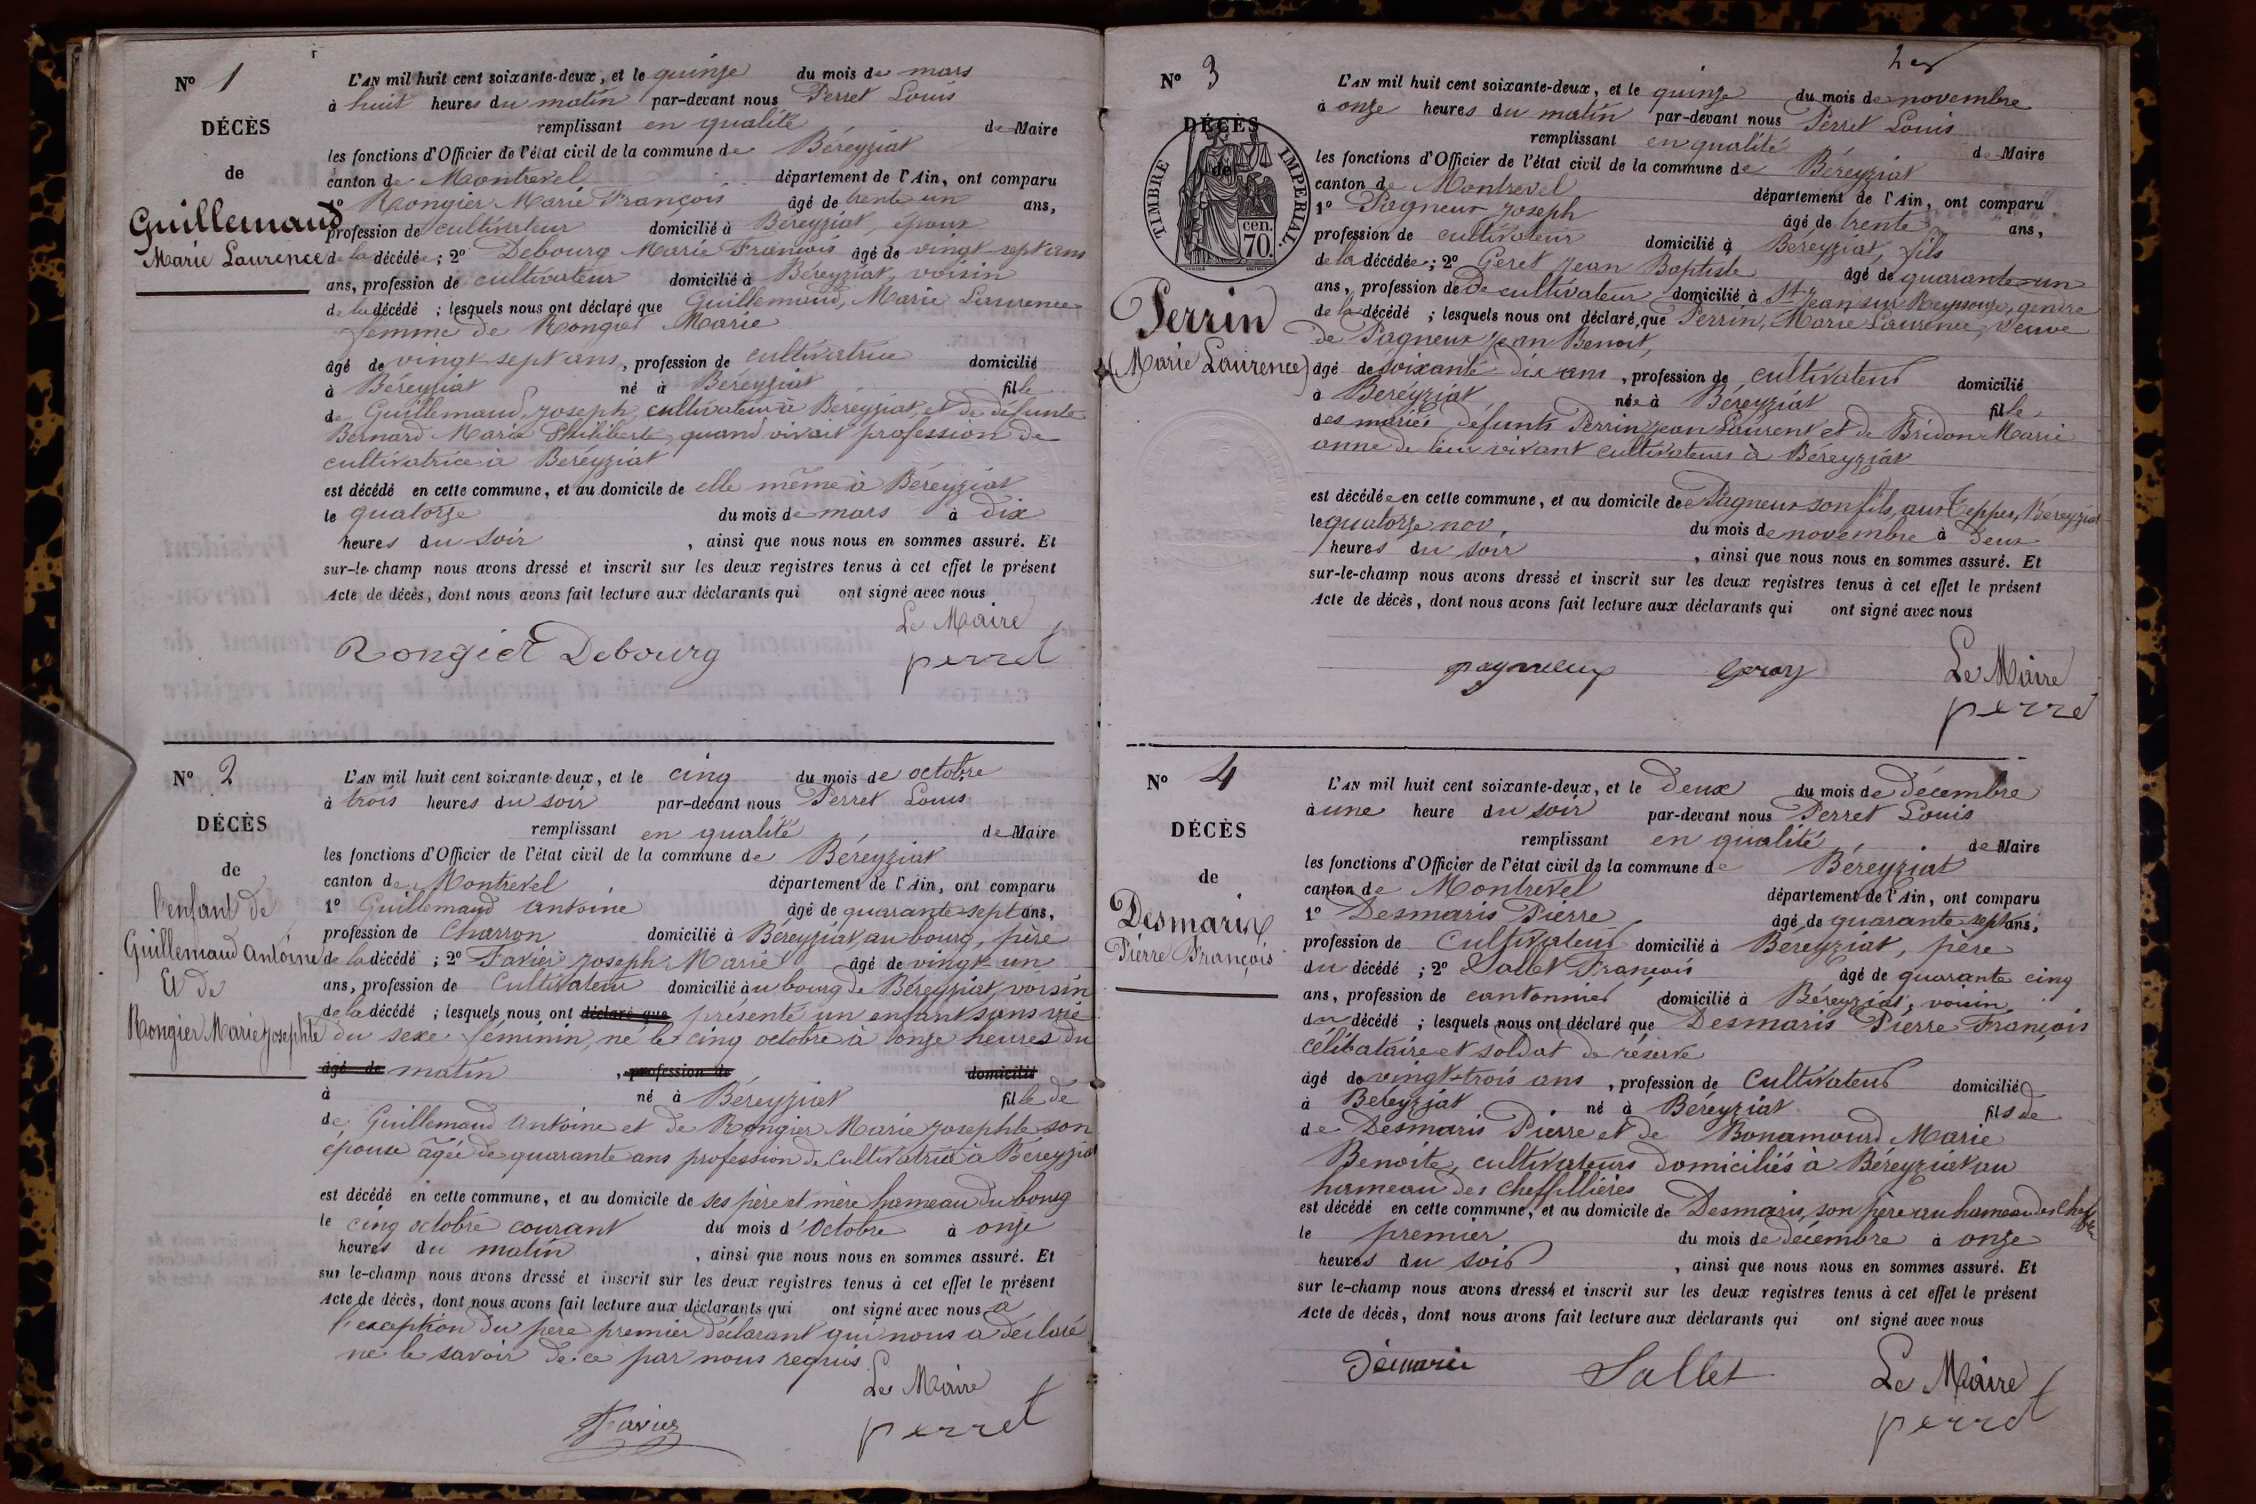 N° 1
DÉCÈS
de
Guillemaud
Marie Laurence
L'AN mil huit cent soixante-deux, et le quinze du mois de mars
à huit heures du matin par-devant nous Perret Louis
remplissant en qualité de Maire
les fonctions d'Officier de l'état civil de la commune de Béreyziat
canton de Montrevel département de l'Ain, ont comparu
1° Rongier Marie François âgé de trente un ans,
profession de cultivateur domicilié à Béreyziat, époux
de la décédée ; 2° Debourg Marie François âgé de vingt sept ans
ans, profession de cultivateur domicilié à Béreyziat, voisin
de la décédé ; lesquels nous ont déclaré que Guillemaud, Marie Laurence
femme de Rongier Marie
âgé de vingt sept ans, profession de cultivatrice domicilié
à Béreyziat né à Béreyziat fille
de Guillemaud Joseph, cultivateur à Béreyziat, et de défunte
Bernard Marie Philiberte, quand vivait profession de
cultivatrice à Béreyziat
est décédé en cette commune, et au domicile de elle même à Béreyziat
le quatorze du mois de mars à dix
heures du soir, ainsi que nous nous en sommes assuré. Et
sur-le-champ nous avons dressé et inscrit sur les deux registres tenus à cet effet le présent
Acte de décès, dont nous avons fait lecture aux déclarants qui ont signé avec nous
Le Maire
Rongier Debourg perret
N° 2
DÉCÈS
de
l'enfant de
Guillemaud Antoine
Et de
Rongier Marie Josephte
L'AN mil huit cent soixante-deux, et le cinq du mois de octobre
à trois heures du soir par-devant nous Perret Louis
remplissant en qualité de Maire
les fonctions d'Officier de l'état civil de la commune de Béreyziat
canton de Montrevel département de l'Ain, ont comparu
1° Guillemaud Antoine âgé de quarante sept ans,
profession de Charron domicilié à Béreyziat au bourg, père
de la décédé ; 2° Favier Joseph Marie âgé de vingt un
ans, profession de Cultivateur domicilié à u bourg de Béreyziat, voisin
de la décédé ; lesquels nous ont déclaré que présenté un enfant sans vie
du sexe féminin, né le cinq octobre à onze heures du
âgé de matin, profession de domicilié
à né à Béreyziat fille de
de Guillemaud Antoine et de Rongier Marie Josephte son
épouse âgée de quarante ans profession de cultivatrice à Béreyziat
est décédé en cette commune, et au domicile de ses père et mère hameau du bourg
le cinq octobre courant du mois d'Octobre à onze
heures du matin, ainsi que nous nous en sommes assuré. Et
sur le-champ nous avons dressé et inscrit sur les deux registres tenus à cet effet le présent
Acte de décès, dont nous avons fait lecture aux déclarants qui ont signé avec nous à
l'exception du père premier déclarant qui nous a déclaré
ne le savoir de ce par nous requis
Le Maire
Favier perret
N° 3
DÉCÈS
de
TIMBRE IMPERIAL.
70. cen.
Perrin
(Marie Laurence)
L'AN mil huit cent soixante-deux, et le quinze du mois de novembre
à onze heures du matin par-devant nous Perret Louis
remplissant en qualité de Maire
les fonctions d'Officier de l'état civil de la commune de Béreyziat
canton de Montrevel département de l'Ain, ont comparu
1° Pagneux Joseph âgé de trente ans,
profession de cultivateur domicilié à Béreyziat, fils
de la décédée ; 2° Geret Jean Baptiste âgé de quarante-un
ans, profession de de cultivateur domicilié à St Jean sur Reyssouze, gendre
de la décédé ; lesquels nous ont déclaré, que Perrin, Marie Laurence, Veuve
de Pagneux Jean Benoit,
âgé de soixante dix ans, profession de cultivateur domicilié
à Béreyziat née à Béreyziat fille
des mariés défunts Perrin Jean Laurent et de Bridon Marie
anne de leur vivant cultivateurs à Béreyziat
est décédée en cette commune, et au domicile de Pagneux son fils, aux Tepps, Béreyziat
le quatorze nov. du mois de novembre à deux
heures du soir, ainsi que nous nous en sommes assuré. Et
sur-le-champ nous avons dressé et inscrit sur les deux registres tenus à cet effet le présent
Acte de décès, dont nous avons fait lecture aux déclarants qui ont signé avec nous
pagneux Le Maire
perret
N° 4
DÉCÈS
de
Desmaris
Pierre François
L'AN mil huit cent soixante-deux, et le deux du mois de décembre
à une heure du soir par-devant nous Perret Louis
remplissant en qualité de Maire
les fonctions d'Officier de l'état civil de la commune de Béreyziat
canton de Montrevel département de l'Ain, ont comparu
1° Desmaris Pierre âgé de quarante sept ans,
profession de Cultivateur domicilié à Béreyziat, père
du décédé ; 2° Sallet François âgé de quarante cinq
ans, profession de cantonnier domicilié à Béreyziat, voisin
du décédé ; lesquels nous ont déclaré que Desmaris Pierre François
célibataire et soldat de réserve
âgé de vingt-trois ans, profession de Cultivateur domicilié
à Béreyziat né à Béreyziat fils de
de Desmaris Pierre et de Bonamour Marie
Benoite, cultivateurs domiciliés à Béreyziat au
hameau des Cheffillières
est décédé en cette commune, et au domicile de Desmaris, son père au hameau des
le premier du mois de décembre à onze
heures du soir, ainsi que nous nous en sommes assuré. Et
sur le-champ nous avons dressé et inscrit sur les deux registres tenus à cet effet le présent
Acte de décès, dont nous avons fait lecture aux déclarants qui ont signé avec nous
Démaris Sallet Le Maire
perret